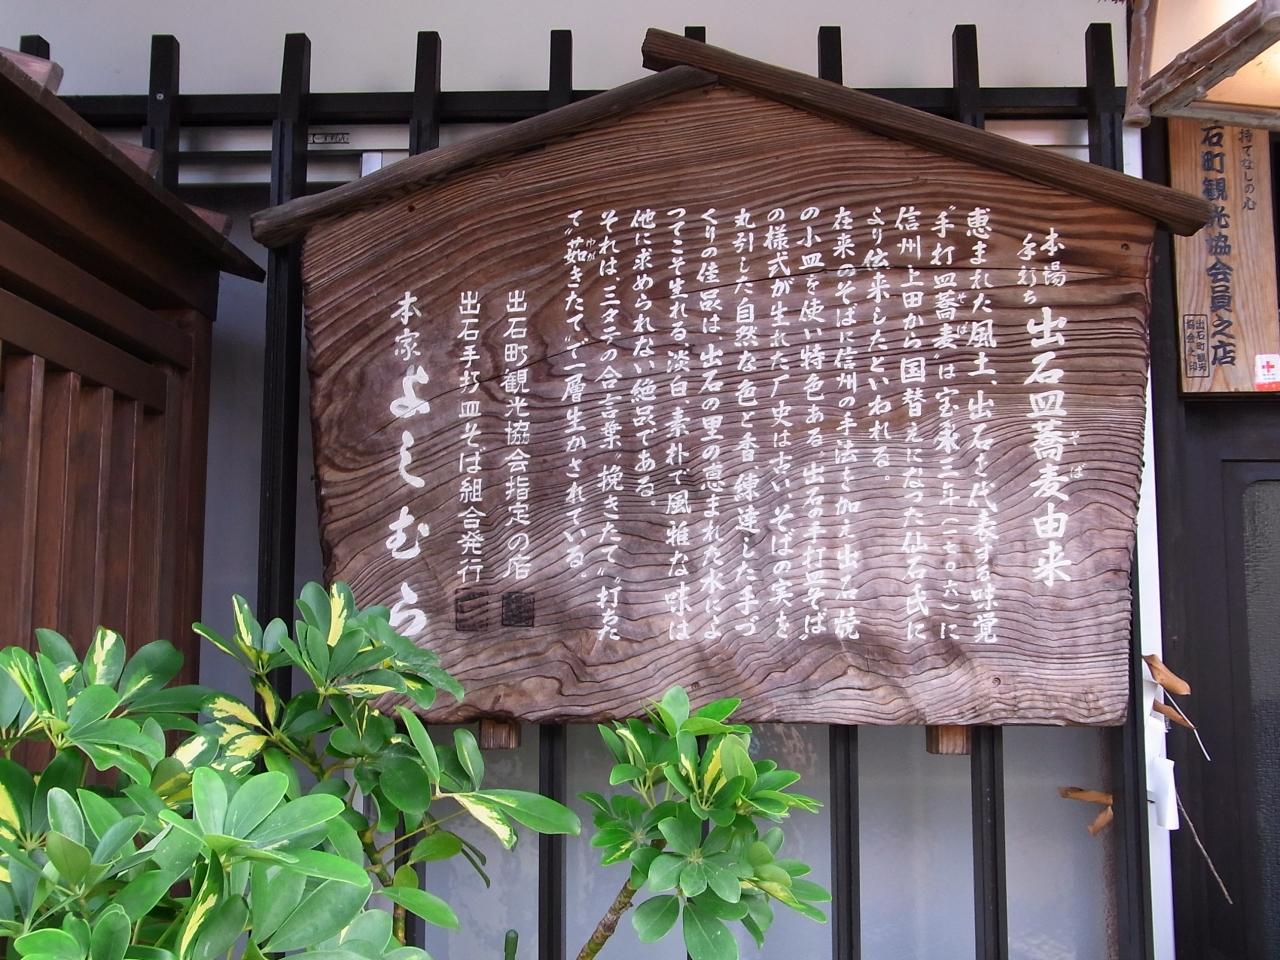 本場
手打ち
出石皿蕎麦由来
そば
恵まれた風土、出石を代表する味覚
〝手打皿蕎麦〟は宝永三年(一七〇六)に
そば
信州上田から国替えになった仙石氏に
より伝来したといわれる。
在来のそばに信州の手法を加え出石焼
の小皿を使い特色ある〝出石の手打皿そば〟
の様式が生れた厂史は古い、そばの実を
丸引した自然な色と香、練達した手づ
くりの佳品は、出石の里の恵まれた水によ
ってこそ生れる、淡白、素朴で風雅な味は
他に求められない絶品である
それは、三タテの合言葉、挽きたて〟〝打ちた
て〟〝茹きたて〟で一層生かされている。
ゆが
出石町観光協会指定の店
出石手打皿そば組合発行
本家 よしむら
持てなしの心
石町観光協会員之店
出石町観光
協会之印